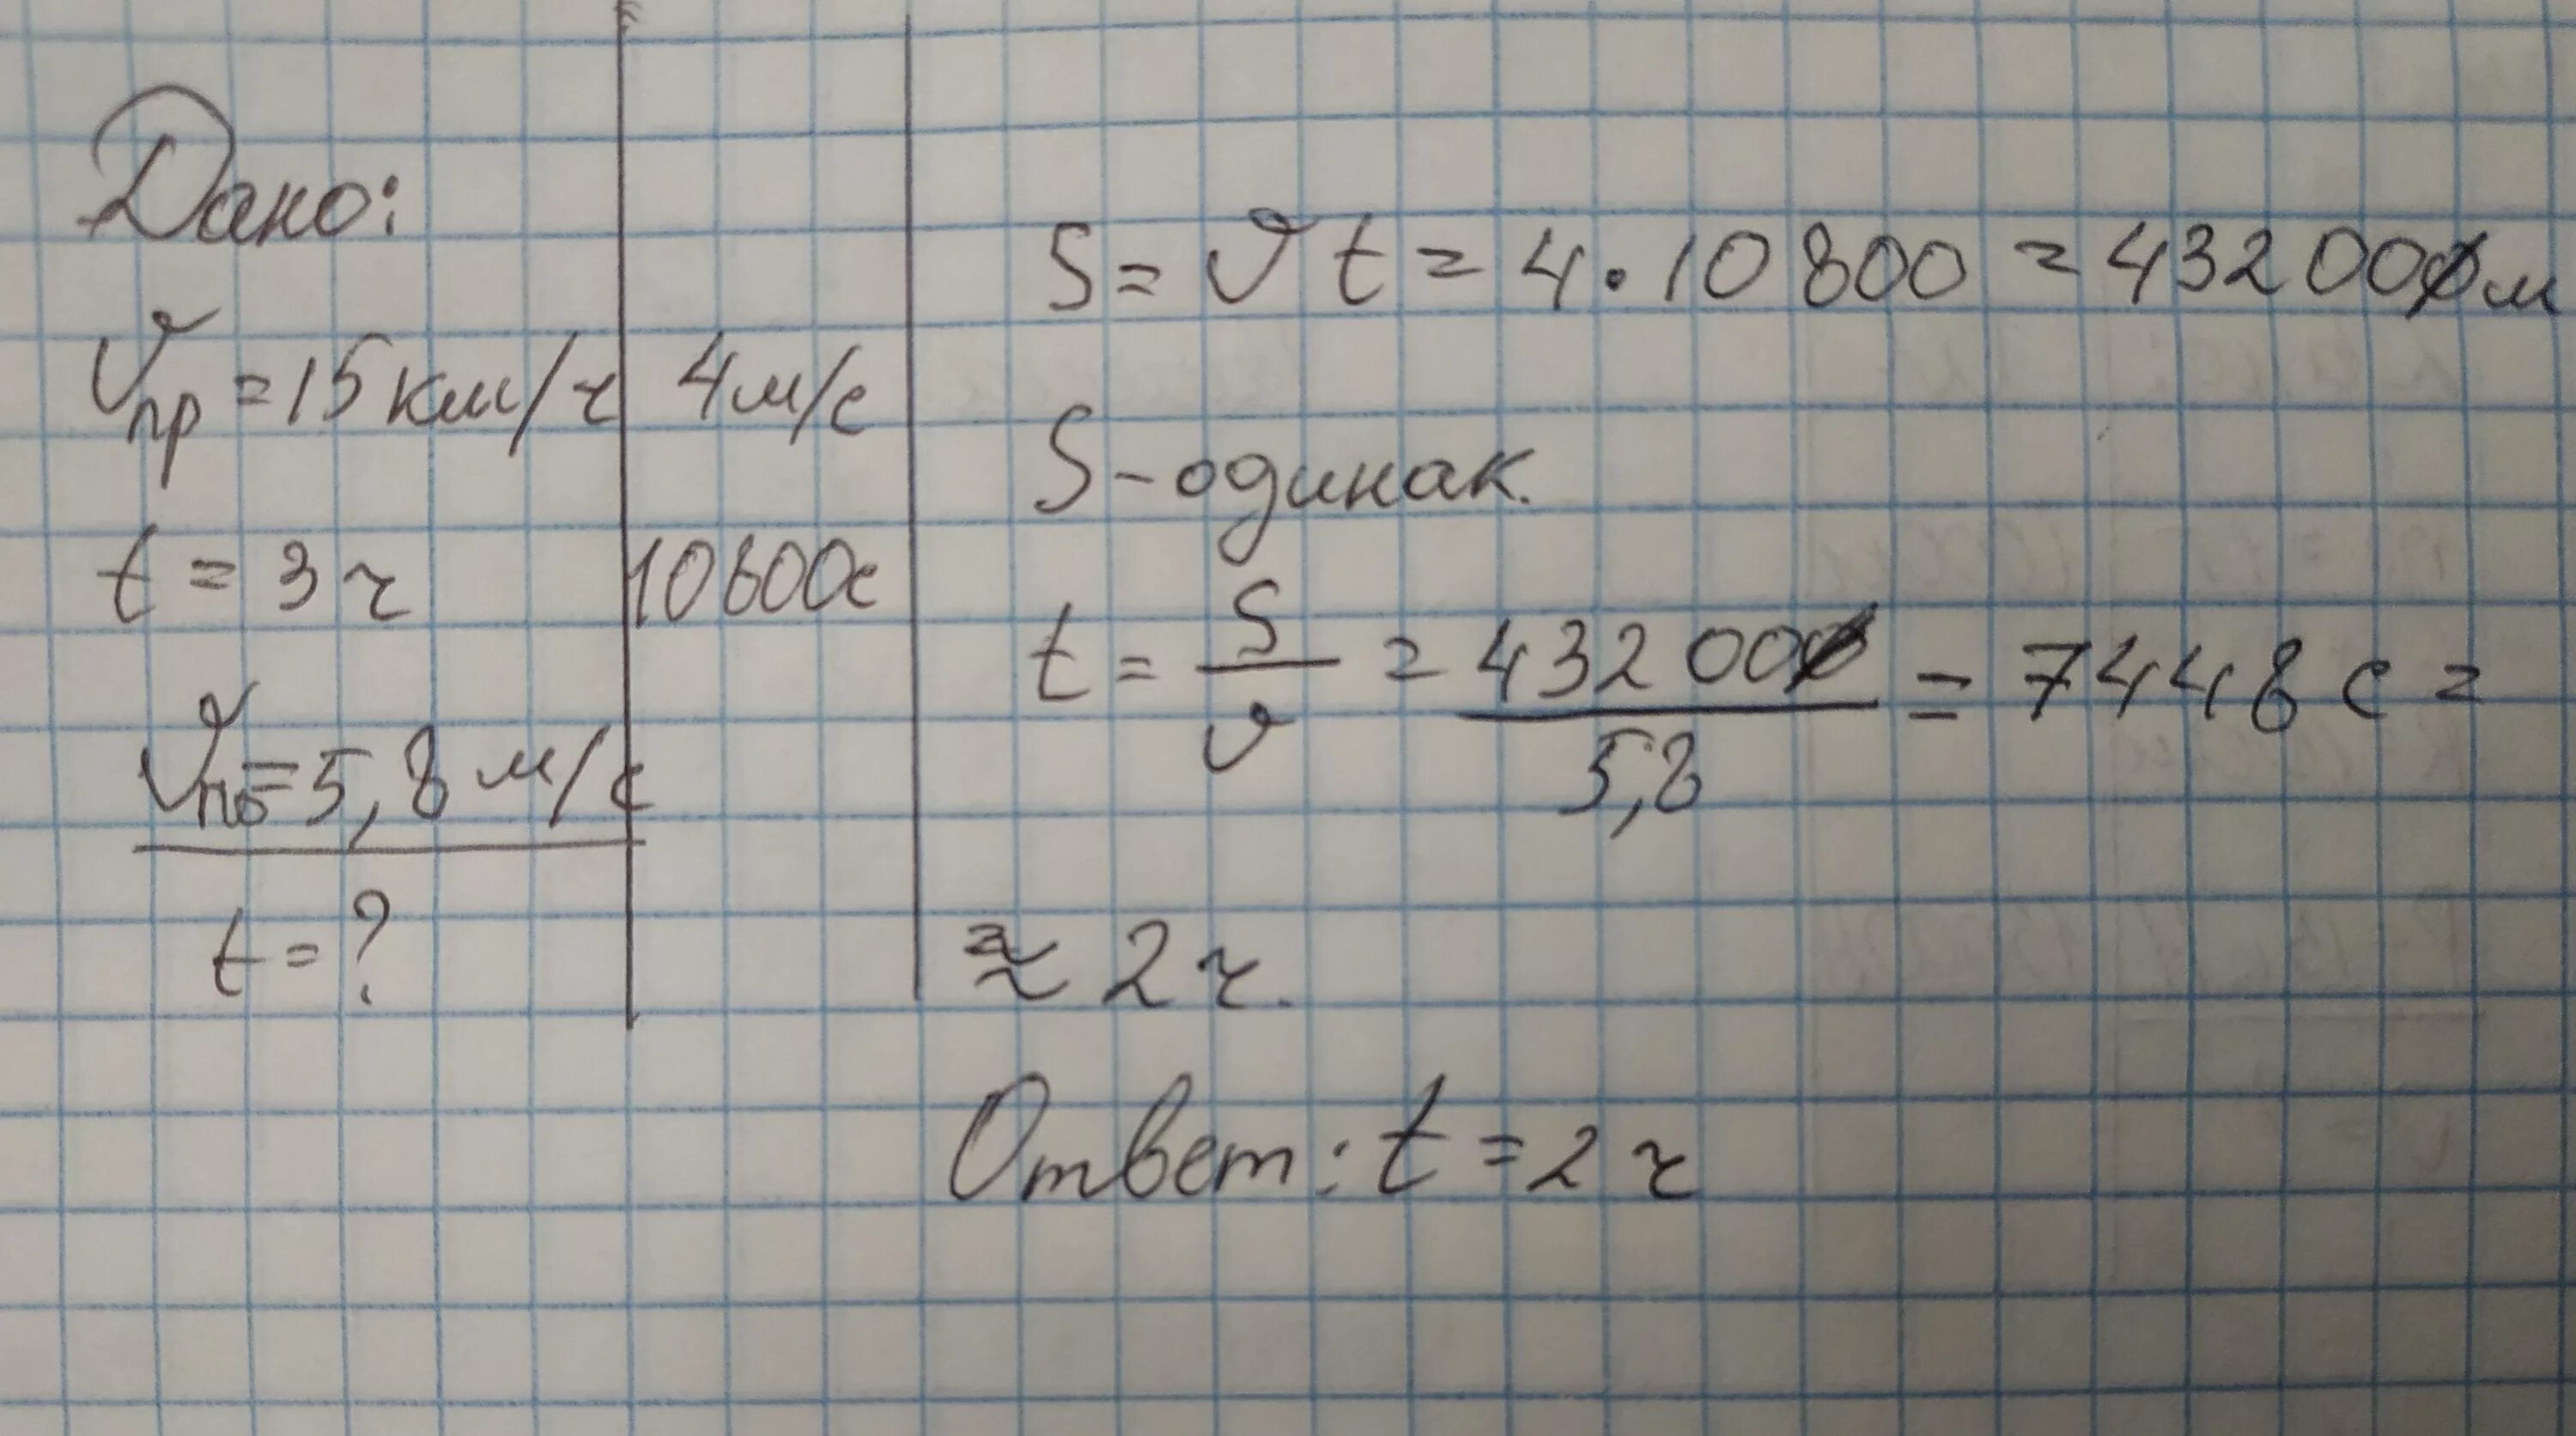 Дано:
υпр = 15 км/ч 4 м/с
t = 3 ч 10800с
υпо = 5,8 м/с
t = ?
S = υt = 4 · 10 800 = 43200 м
S - одинак.
t = S/υ = 43200/5,8 = 7448 с =
≈ 2 ч.
Ответ: t = 2 ч